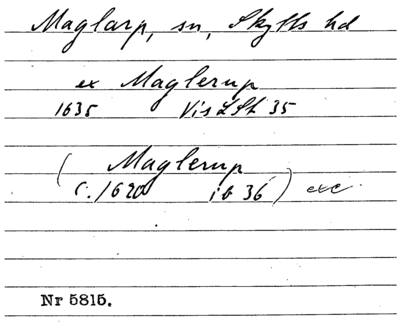 Maglarp, sn, Skytts hd
ex Maglerup
1635 Vis LSk 35
( Maglerup
c. 1620 ib 36 ) exc.
Nr 5815.